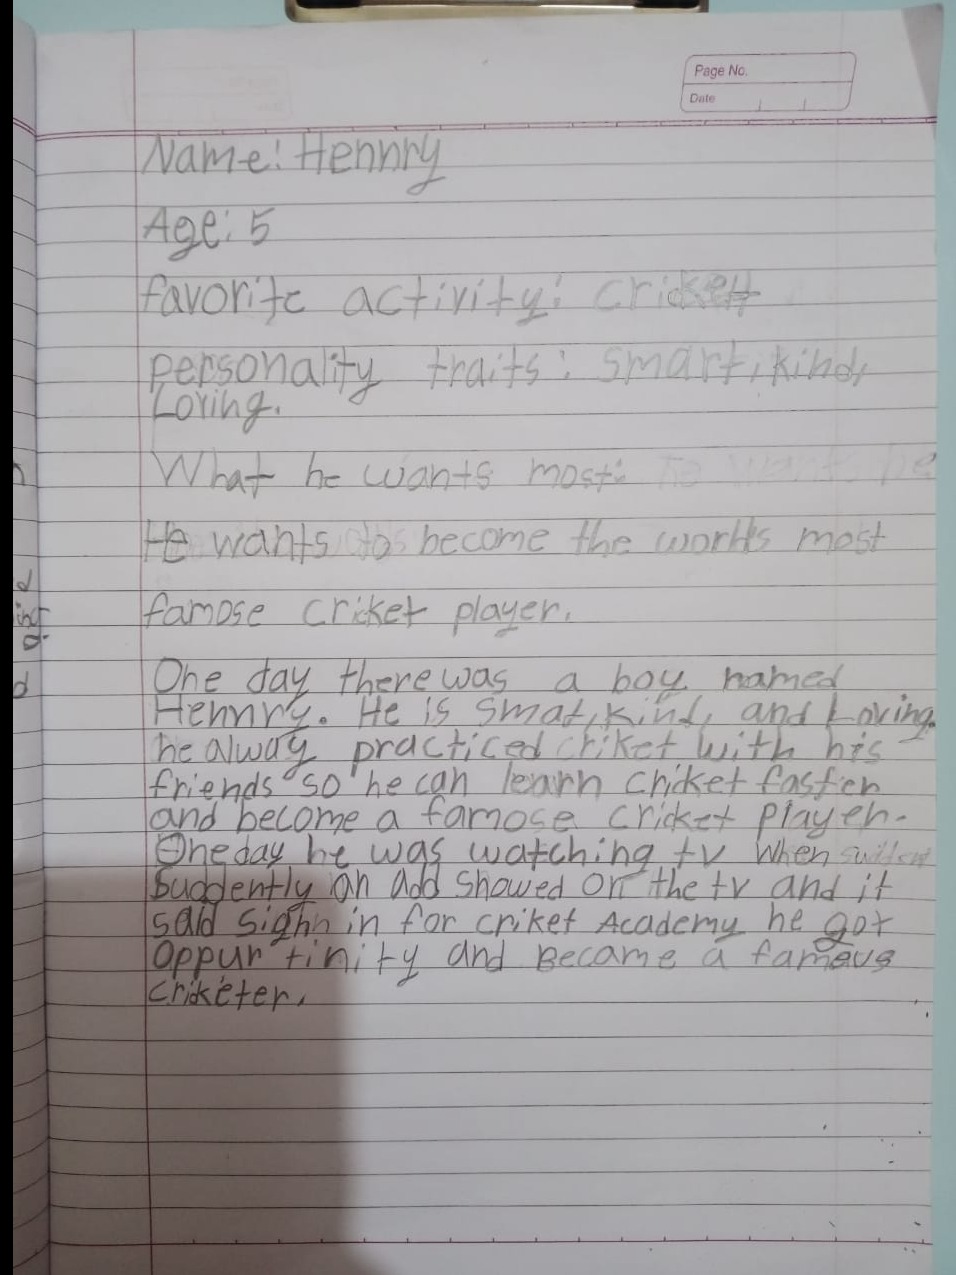 Page No.
Date
Name: Hennry
Age: 5
favorite activity: cricket
personality traits: smart, kind,
Loving.
What he wants most:
He wants to become the worlds most
famose cricket player.
One day there was a boy named
Hennry. He is smat, kind, and Loving.
he alway practiced criket with his
friends so he can learn criket faster
and become a famose cricket player.
One day he was watching tv when
Suddently an add showed on the tv and it
said sighn in for criket Academy he got
oppurtinity and Became a famous
criketer.